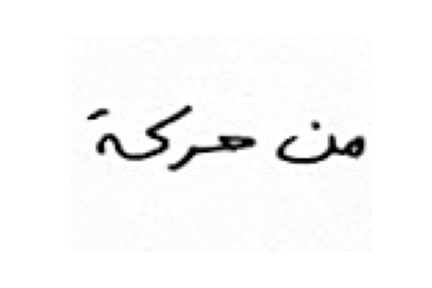 من حركة